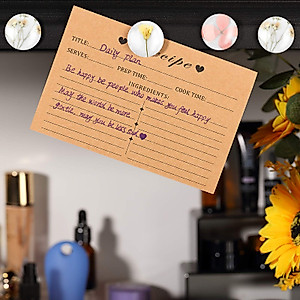 Recipe
TITLE: Daily plan
SERVES: PREP TIME: COOK TIME:
INGREDIENTS:
Be happy be people who makes you feel happy
May the world be more
gentle, may you be less sad